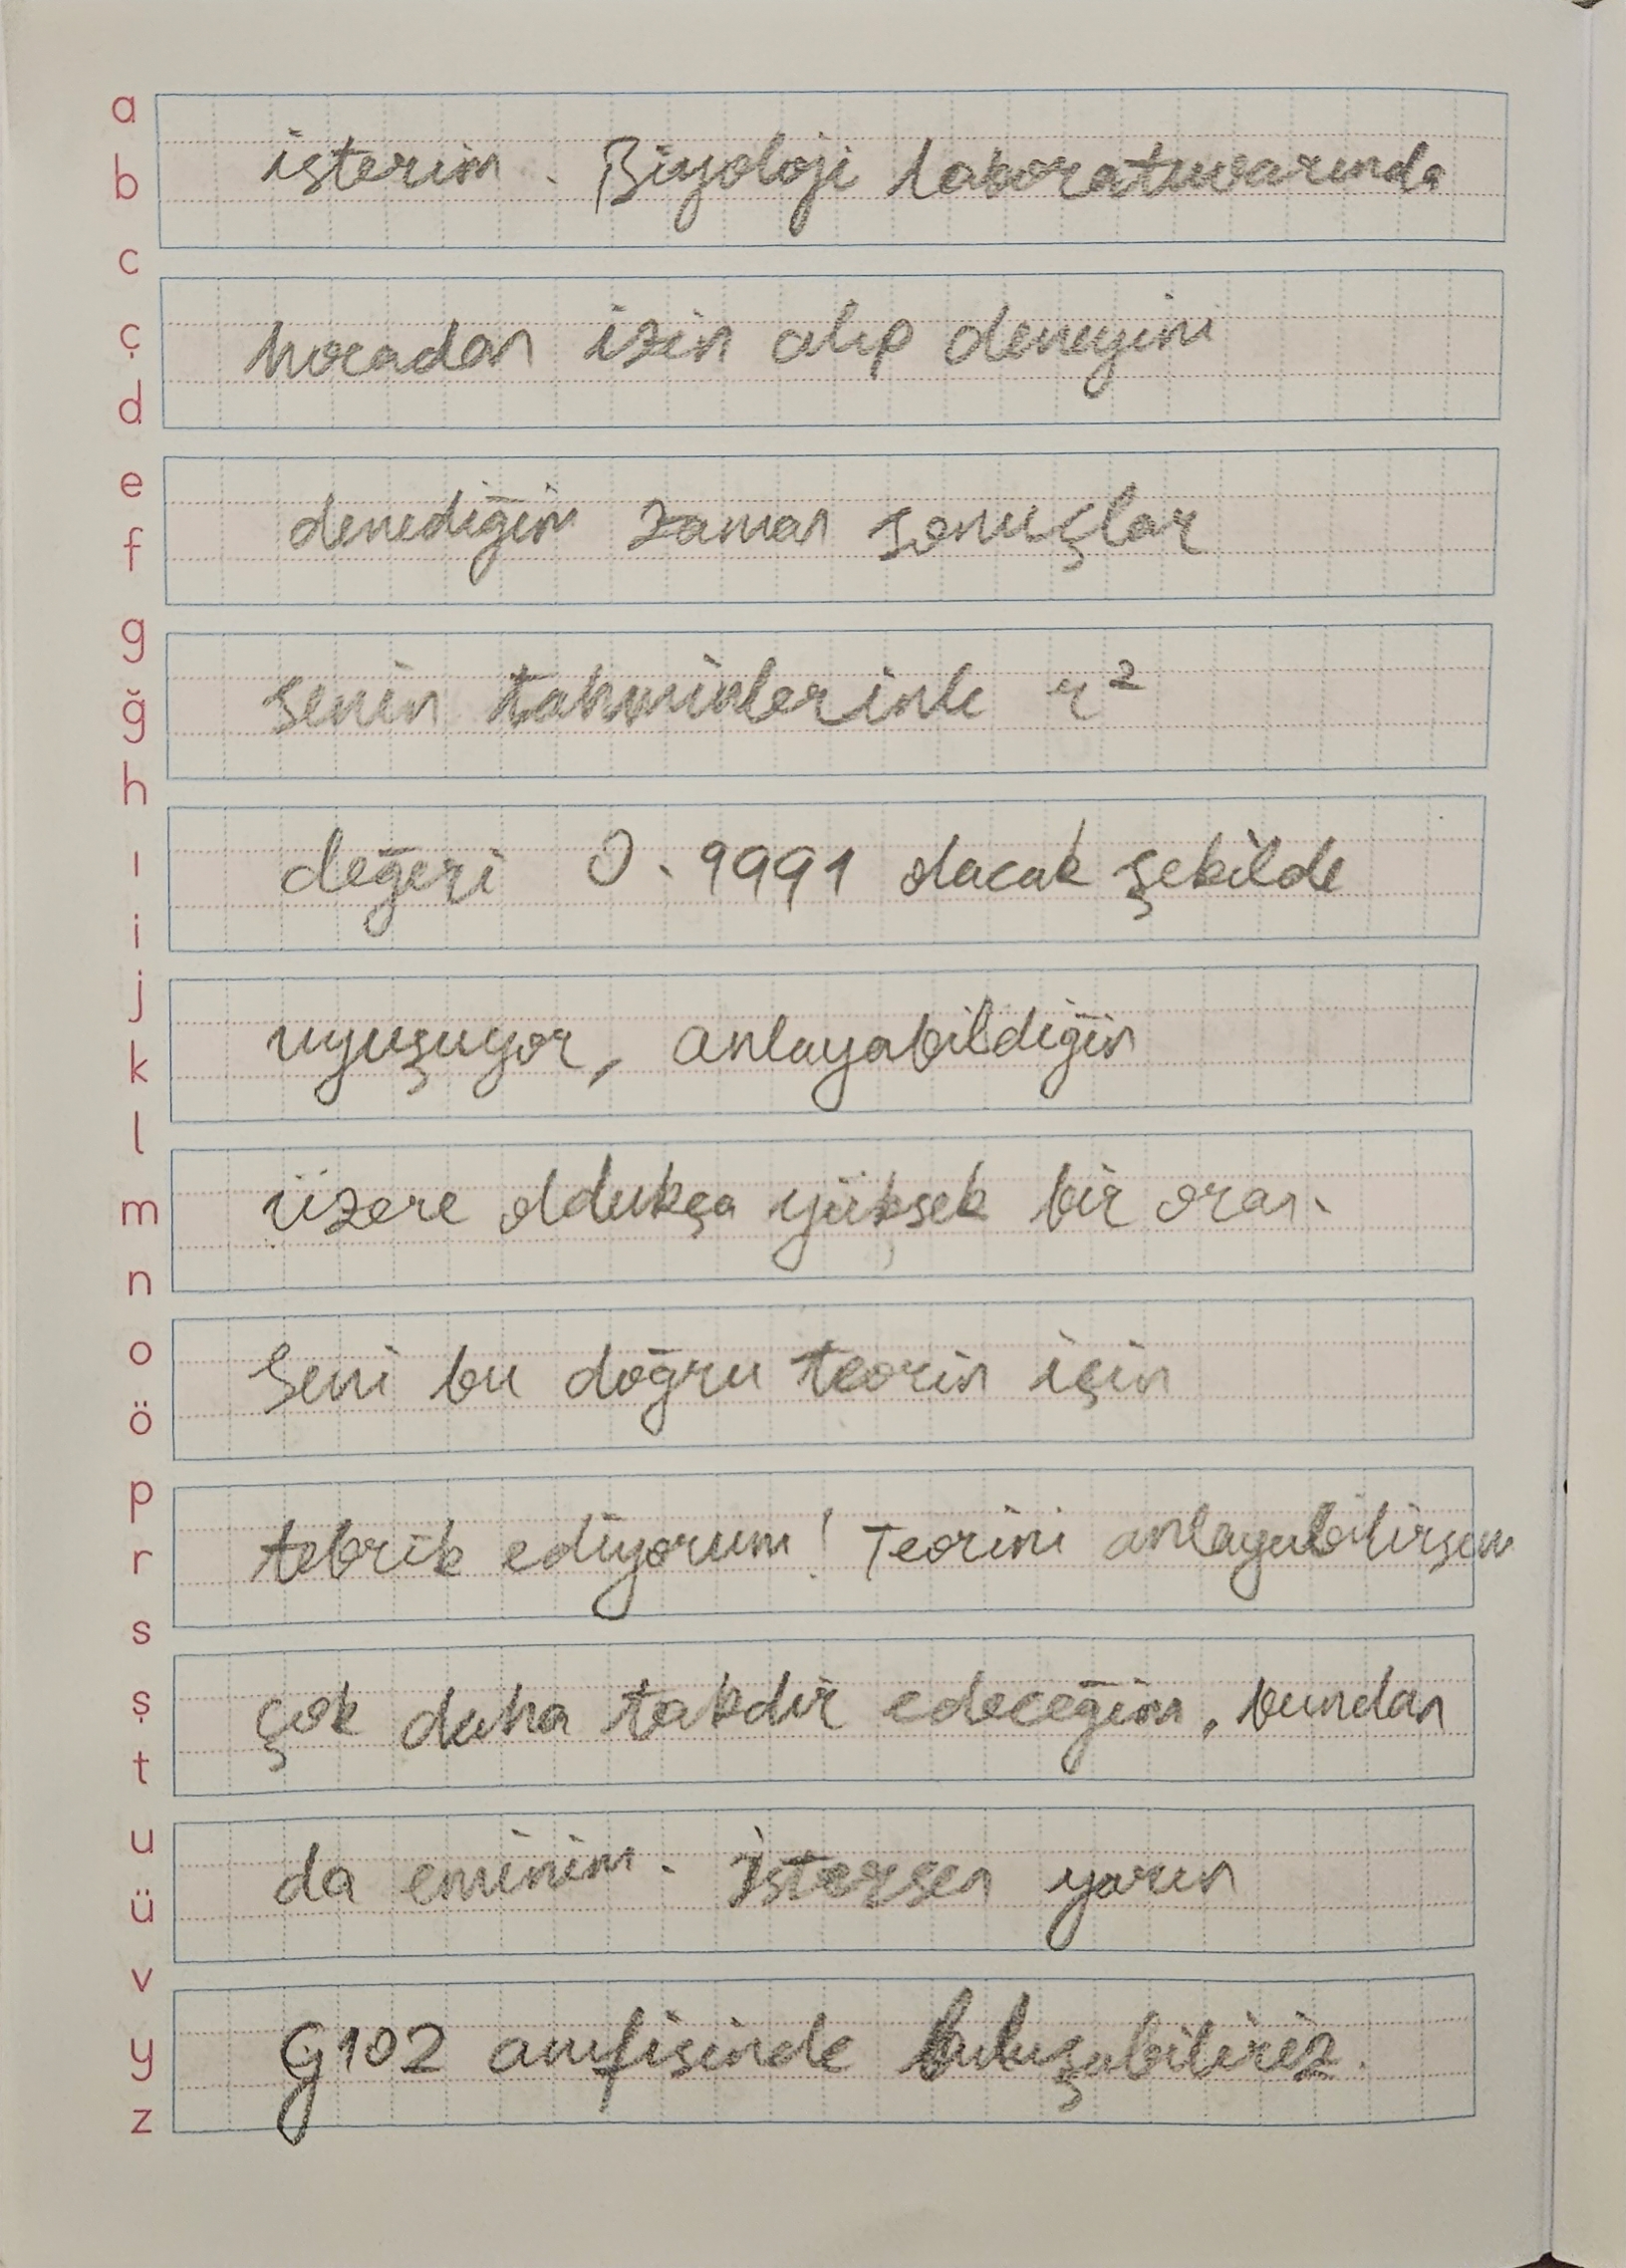 a
b
c
ç
d
e
f
g
ğ
h
ı
i
j
k
l
m
n
o
ö
p
r
s
ş
t
u
ü
v
y
z
isterim. Biyoloji laboratuvarında
hocadan izin alıp deneyini
denediğim zaman sonuçlar
senin tahminlerinle r²
değeri 0.9991 olacak şekilde
uyuşuyor, anlayabildiğin
üzere oldukça yüksek bir oran.
Seni bu doğru teorin için
tebrik ediyorum! Teorini anlayabilirsem
çok daha takdir edeceğim, bundan
da eminim. İstersen yarın
G102 amfisinde buluşabiliriz.